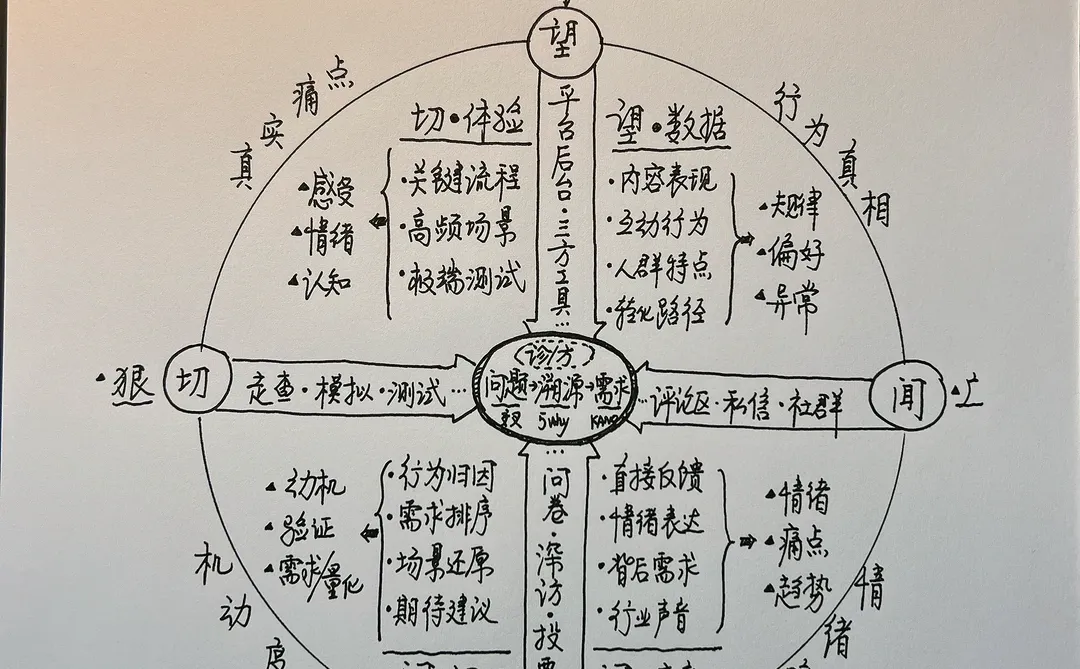 望
真实痛点
行为真相
切·体验
·关键流程
·高频场景
·极端测试
▲感受
▲情绪
▲认知
平台后台·三方工具…
望·数据
·内容表现
·互动行为
·人群特点
·转化路径
▲规律
▲偏好
▲异常
▲狠
切
走查·模拟·测试…
〈诊/方〉
问题→溯源→需求
5why
KANO
…评论区·私信·社群
闻
▲广
·行为归因
·需求排序
·场景还原
·期待建议
▲动机
▲验证
▲需求/量化
…问卷·深访·投票
·直接反馈
·情绪表达
·背后需求
·行业声音
▲情绪
▲痛点
▲趋势
机动
情绪